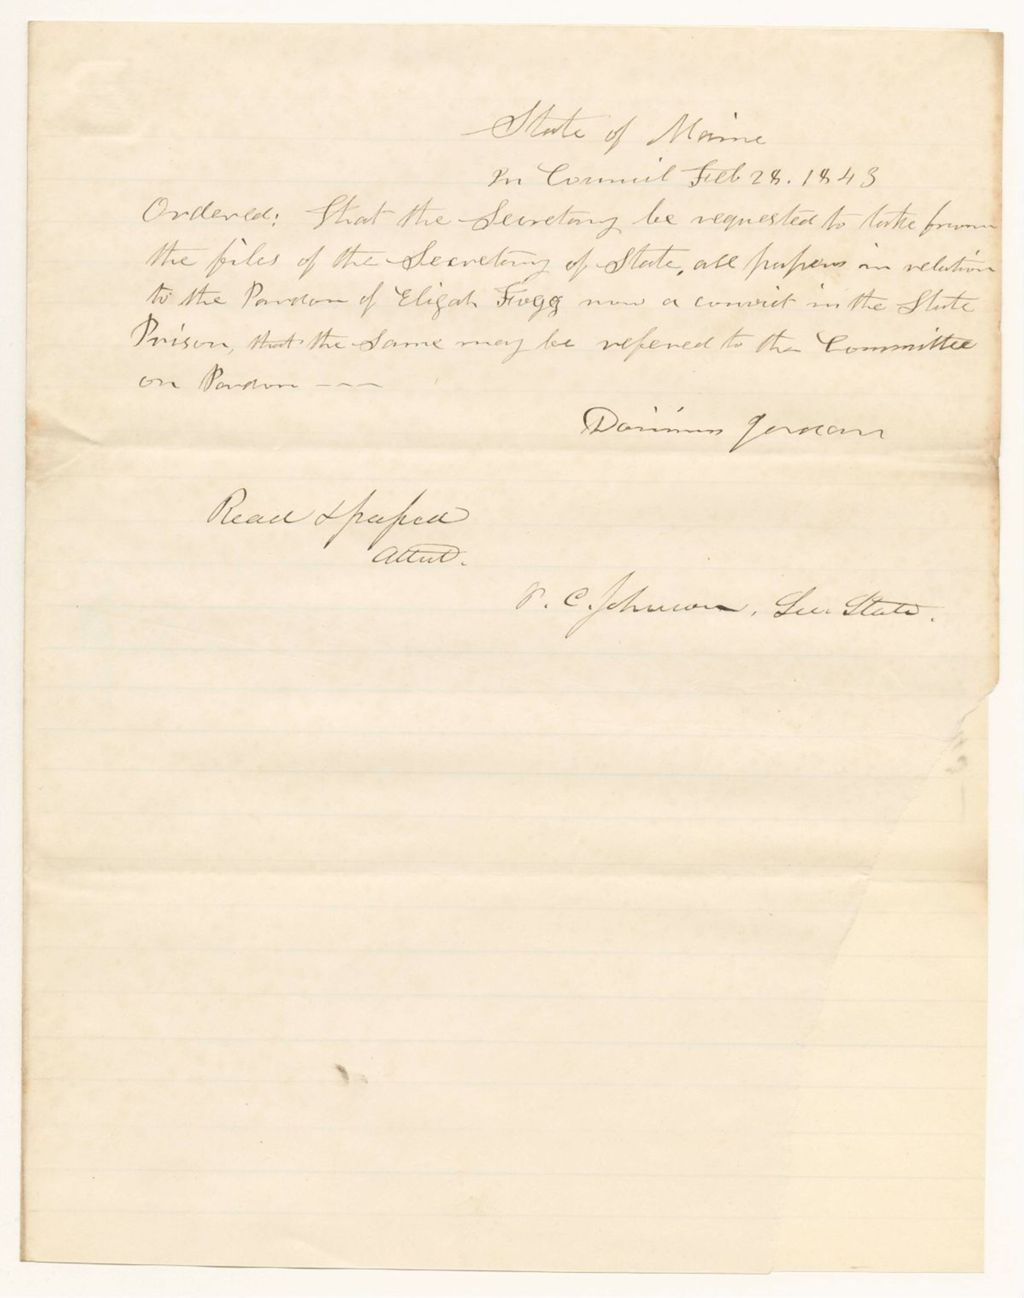 State of Maine
In Council Feb 28. 1843
Ordered; That the Secretary be requested to take from
the files of the Secretary of State, all papers in relation
to the Pardon of Elijah Fogg now a convict in the State
Prison, that the same may be refered to the Committee
on Pardon ---
Dominus Jordan
Read & passed
Attest.
P. C. Johnson, Sec State.